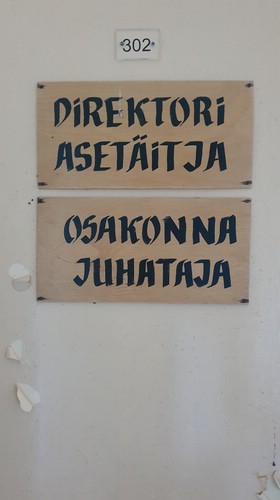 302
DiREKTORi
ASETÄiTJA
OSAKONNA
JUHATAJA